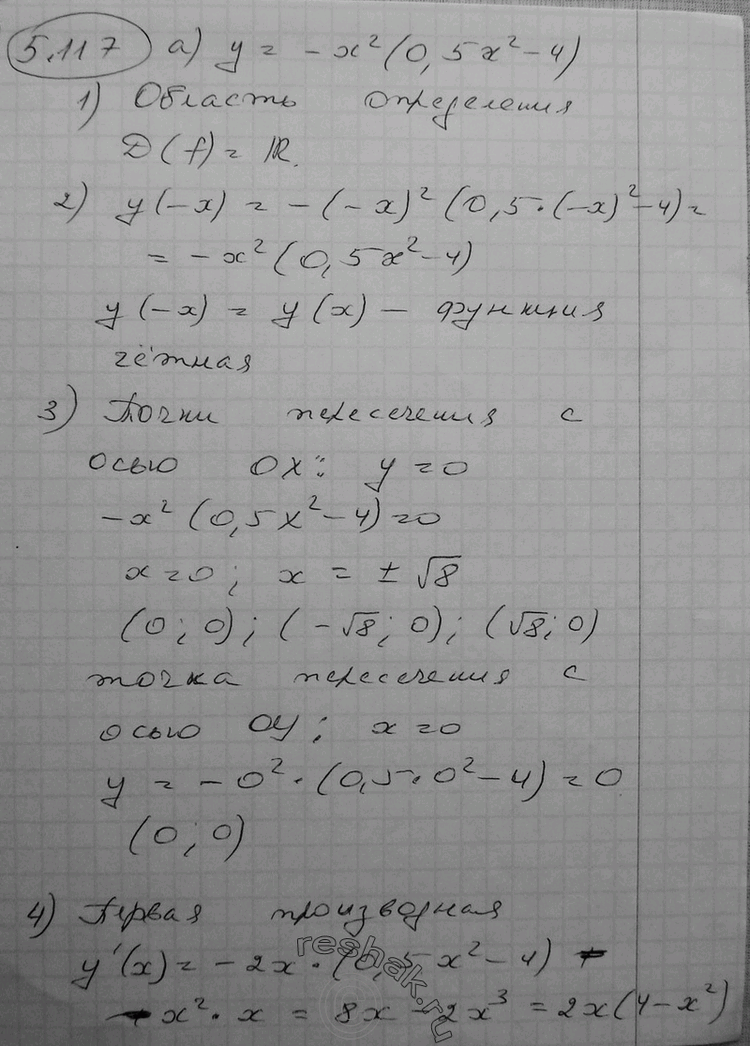 5.117 а) y = -x²(0,5x²-4)
1) Область определения
D(f) = ℝ.
2) y(-x) = -(-x)²(0,5·(-x)²-4) =
= -x²(0,5x²-4)
y(-x) = y(x) - функция
чётная
3) Точки пересечения с
осью OX: y = 0
-x²(0,5x²-4) = 0
x = 0; x = ±√8
(0; 0); (-√8; 0); (√8; 0)
точка пересечения с
осью OY; x = 0
y = -0²·(0,5·0²-4) = 0
(0; 0)
4) Первая производная
y'(x) = -2x·(0,5x²-4) -
- x²·x = 8x - 2x³ = 2x(4-x²)
reshak.ru